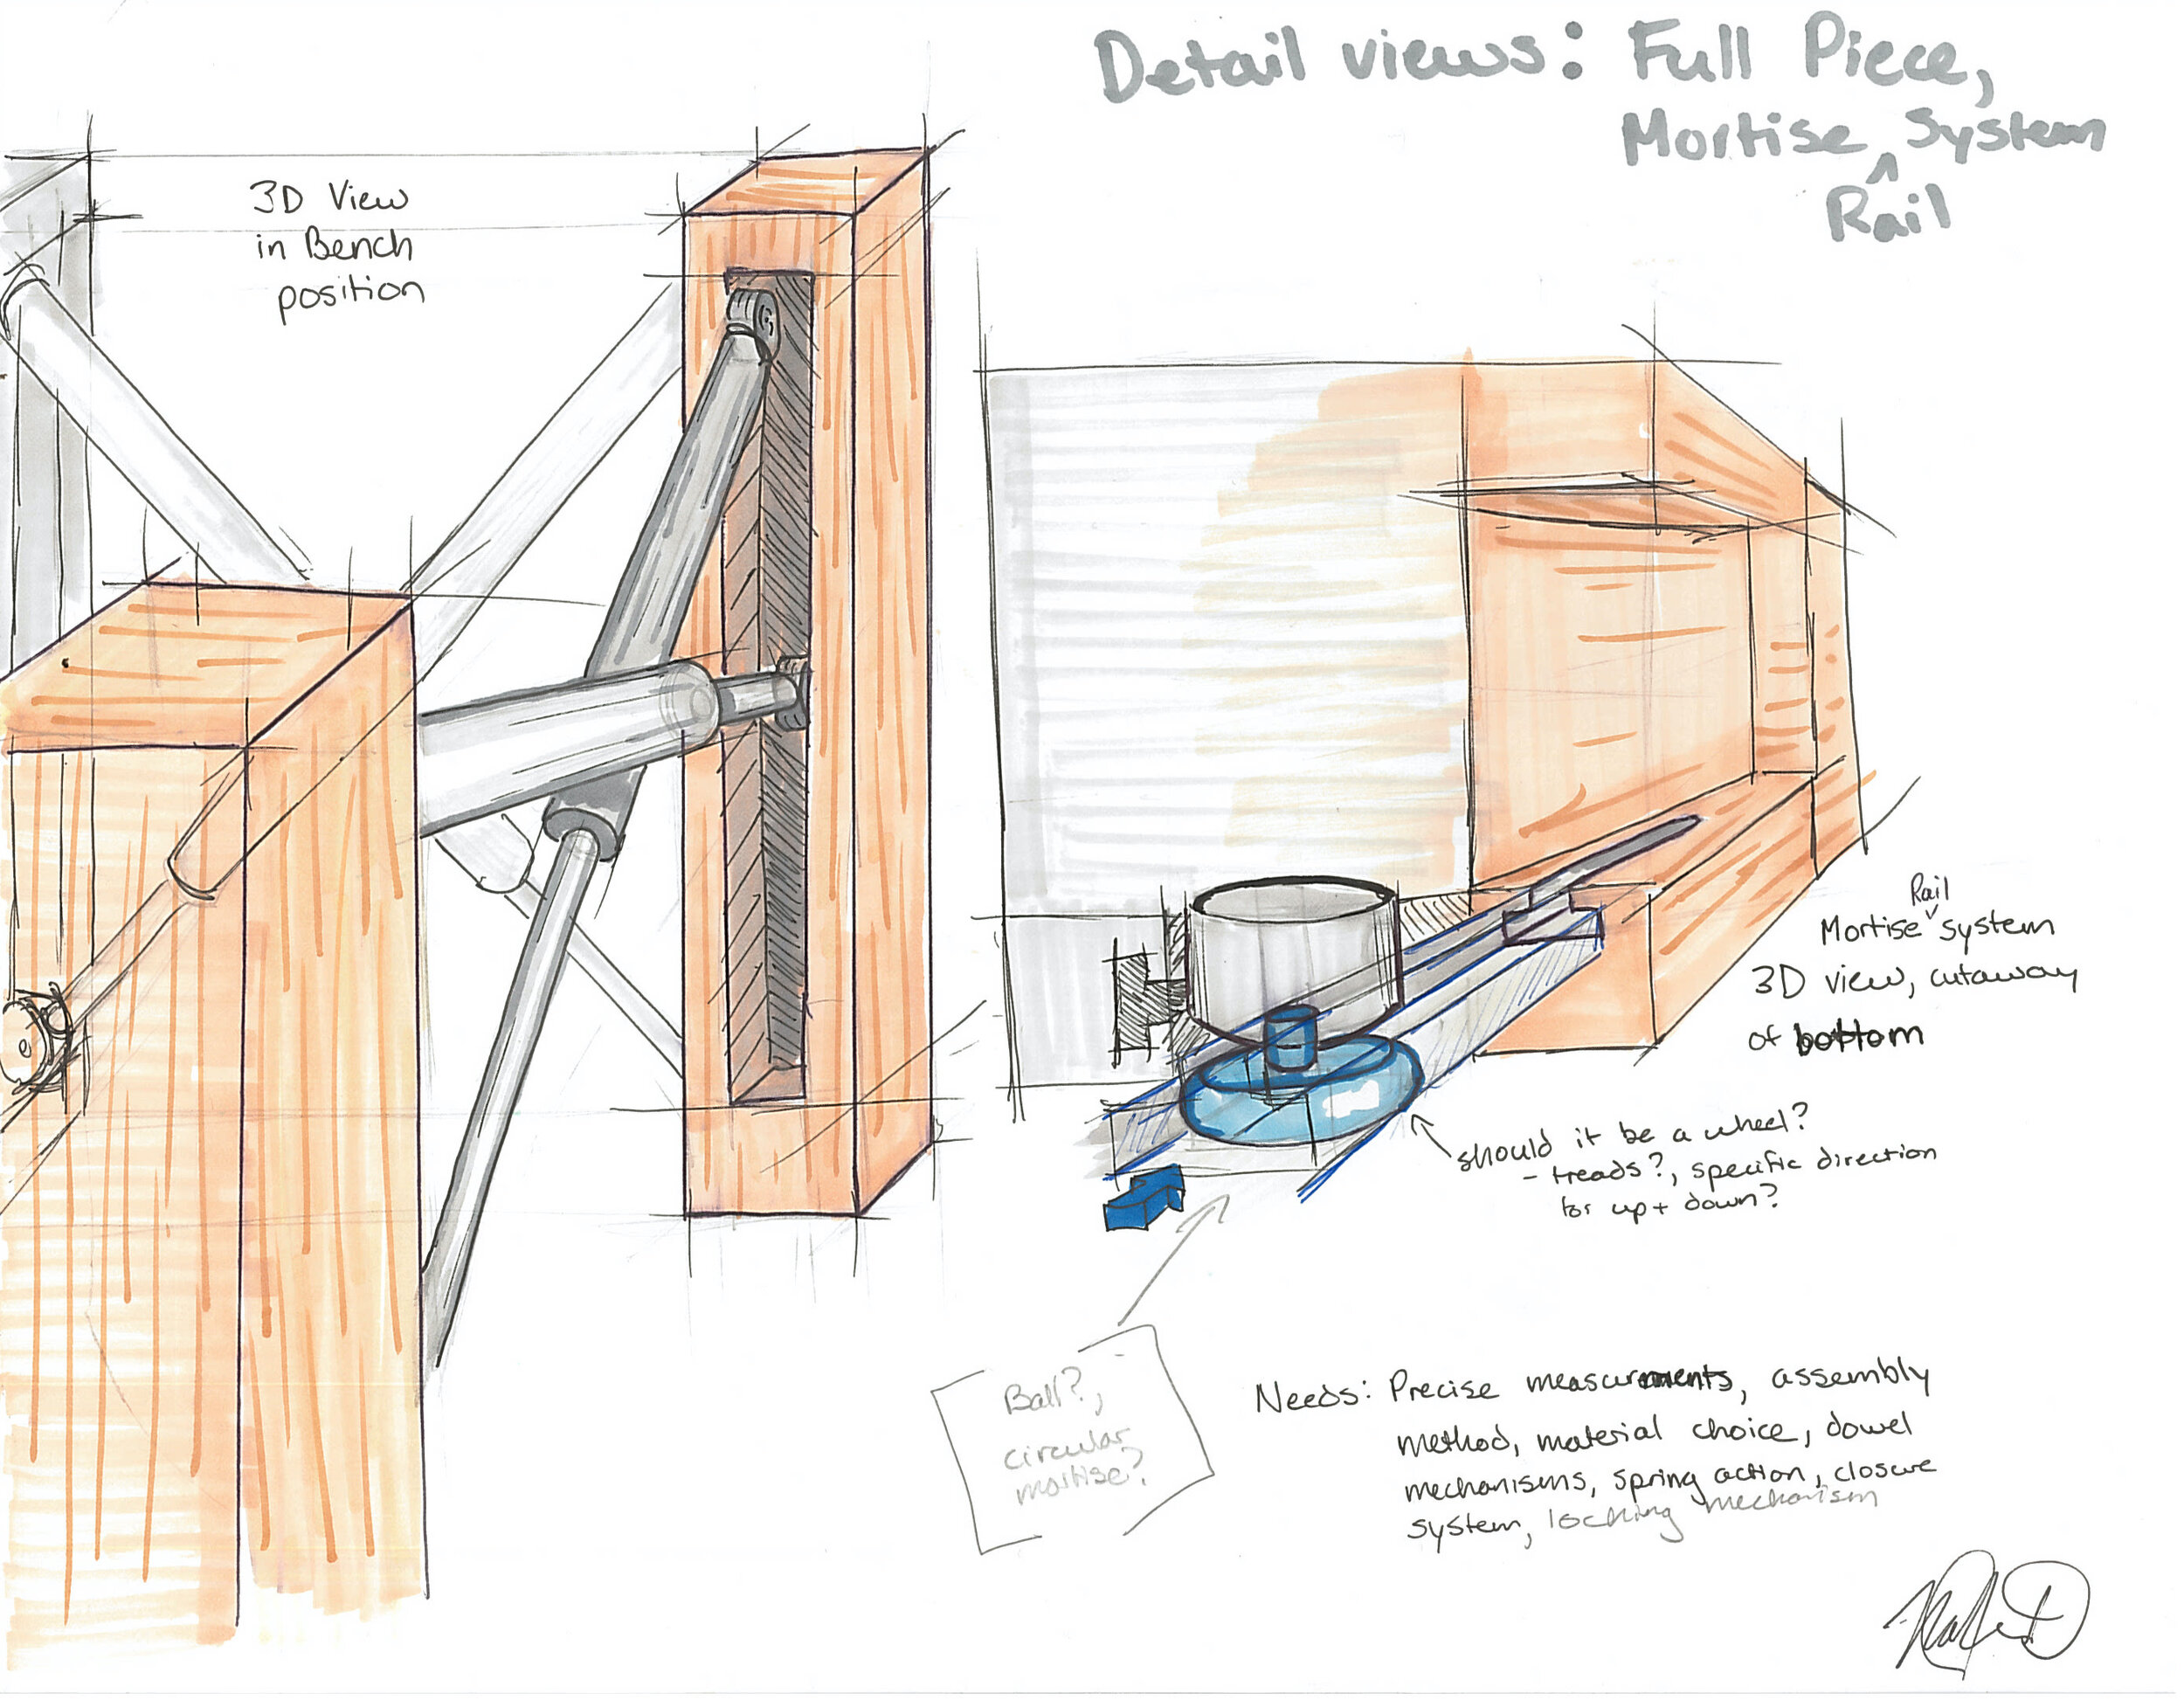 Detail views: Full Piece,
Mortise ^ System
Rail
3D View
in Bench
position
Rail
Mortise ˅ system
3D view, cutaway
of bottom
should it be a wheel?
- treads?, specific direction
for up + down?
Ball?,
circular
mortise?
Needs: Precise measurments, assembly
method, material choice, dowel
mechanisms, spring action, closure
system, locking mechanism